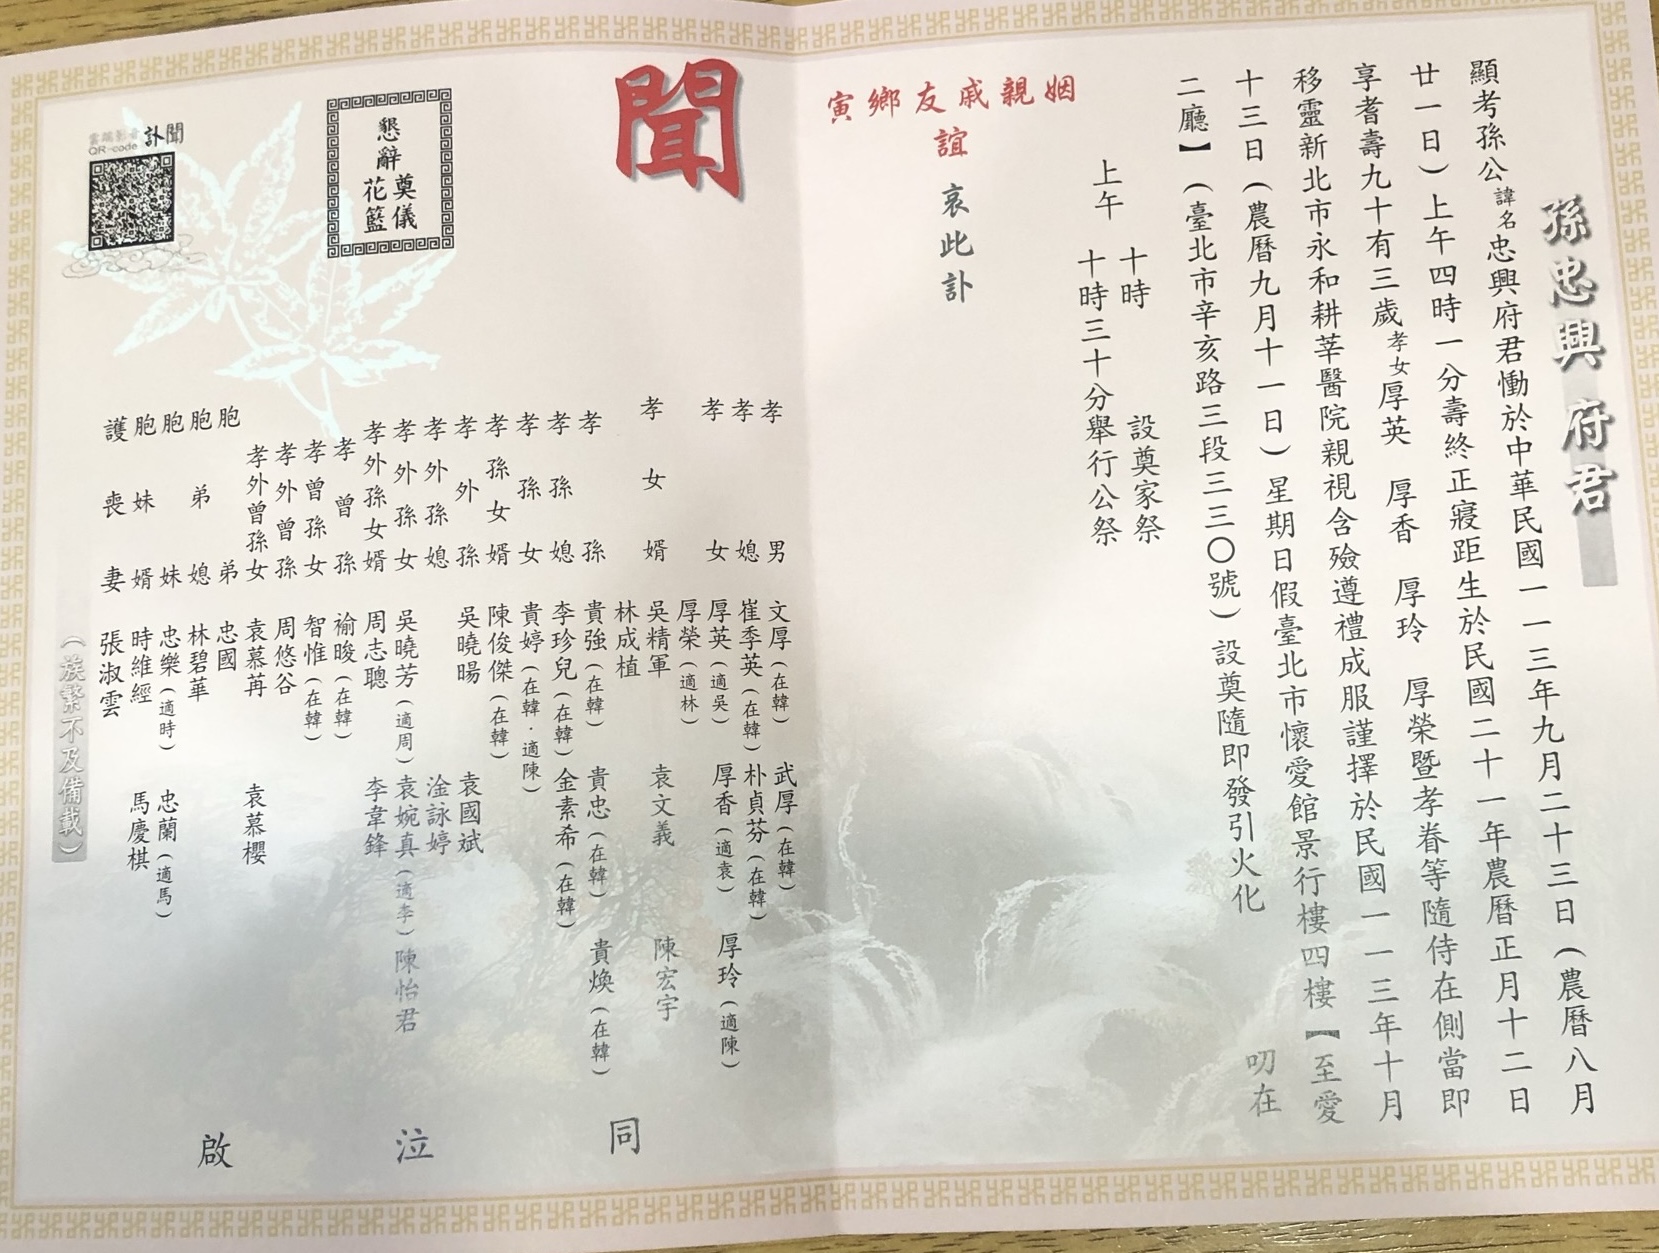 孫忠興 府君
顯考孫公諱名忠興府君慟於中華民國一一三年九月二十三日(農曆八月
廿一日)上午四時一分壽終正寢距生於民國二十一年農曆正月十二日
享耆壽九十有三歲孝女厚英 厚香 厚玲 厚榮暨孝眷等隨侍在側當即
移靈新北市永和耕莘醫院親視含殮遵禮成服謹擇於民國一一三年十月
十三日(農曆九月十一日)星期日假臺北市懷愛館景行樓四樓【至愛
二廳】(臺北市辛亥路三段三三〇號)設奠隨即發引火化 叨在
上午 十時 設奠家祭
十時三十分舉行公祭
姻親戚友鄉寅
誼 哀此訃
聞
孝男 文厚(在韓) 武厚(在韓)
孝媳 崔季英(在韓) 朴貞芬(在韓)
孝女 厚英(適吳) 厚香(適袁) 厚玲(適陳)
厚榮(適林)
孝女婿 吳精軍 袁文義 陳宏宇
林成植
孝孫 貴強(在韓) 貴忠(在韓) 貴煥(在韓)
孝孫媳 李珍兒(在韓) 金素希(在韓)
孝孫女 貴婷(在韓.適陳)
孝孫女婿 陳俊傑(在韓)
孝外孫 吳曉暘 袁國斌
孝外孫媳 淦詠婷
孝外孫女 吳曉芳(適周) 袁婉真(適李) 陳怡君
孝外孫女婿 周志聰 李韋鋒
孝曾孫 褕晙(在韓)
孝曾孫女 智惟(在韓)
孝外曾孫 周悠谷
孝外曾孫女 袁慕苒 袁慕櫻
胞弟 忠國
胞弟媳 林碧華
胞妹 忠樂(適時) 忠蘭(適馬)
胞妹婿 時維經 馬慶棋
護喪妻 張淑雲
(族繁不及備載)
同 泣 啟
懇辭奠儀花籃
訃聞
雲端影音
QR-code